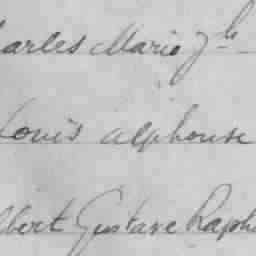 harles Marie Jh
Louis alphonse
lbert Gustave Rapha